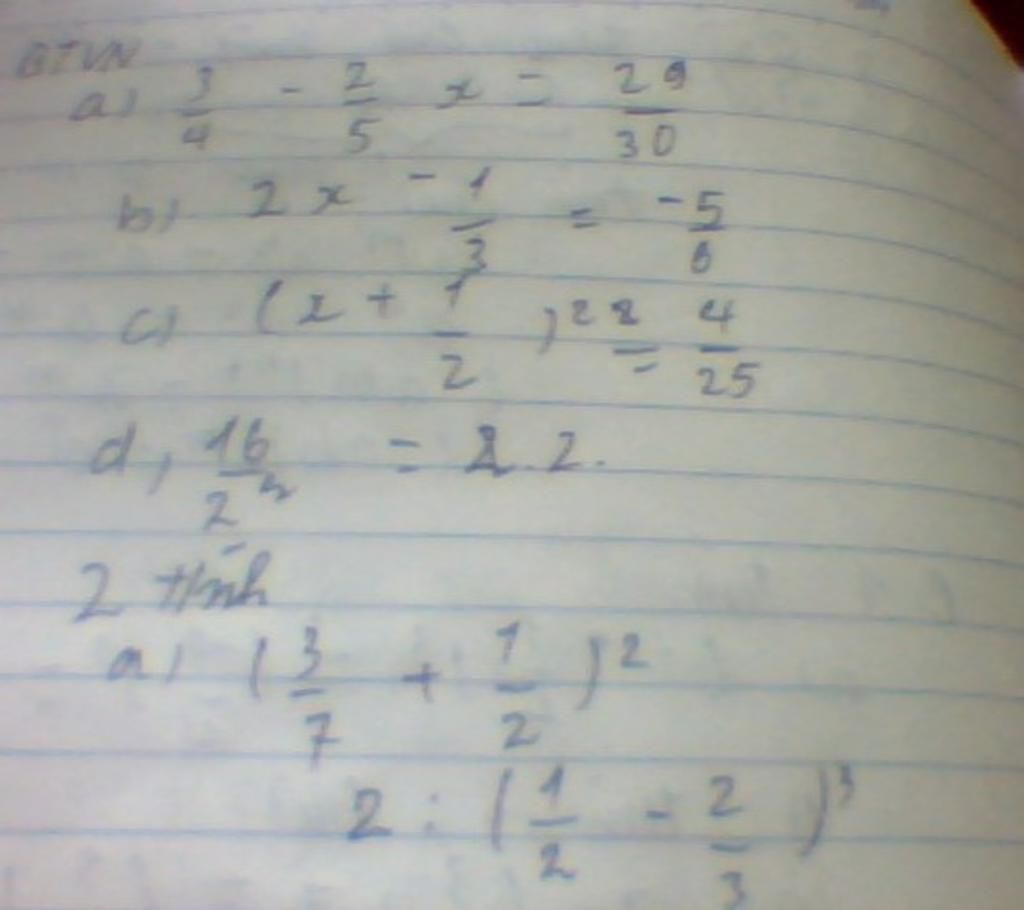 BTVN
a) 3/4 - 2/5 x = 29/30
b) 2x - 1/3 = -5/6
c) (x + 1/2)² = 4/25
d, 16/2ⁿ = 2.2.
2 tính
a) (3/7 + 1/2)²
2 : (1/2 - 2/3)³